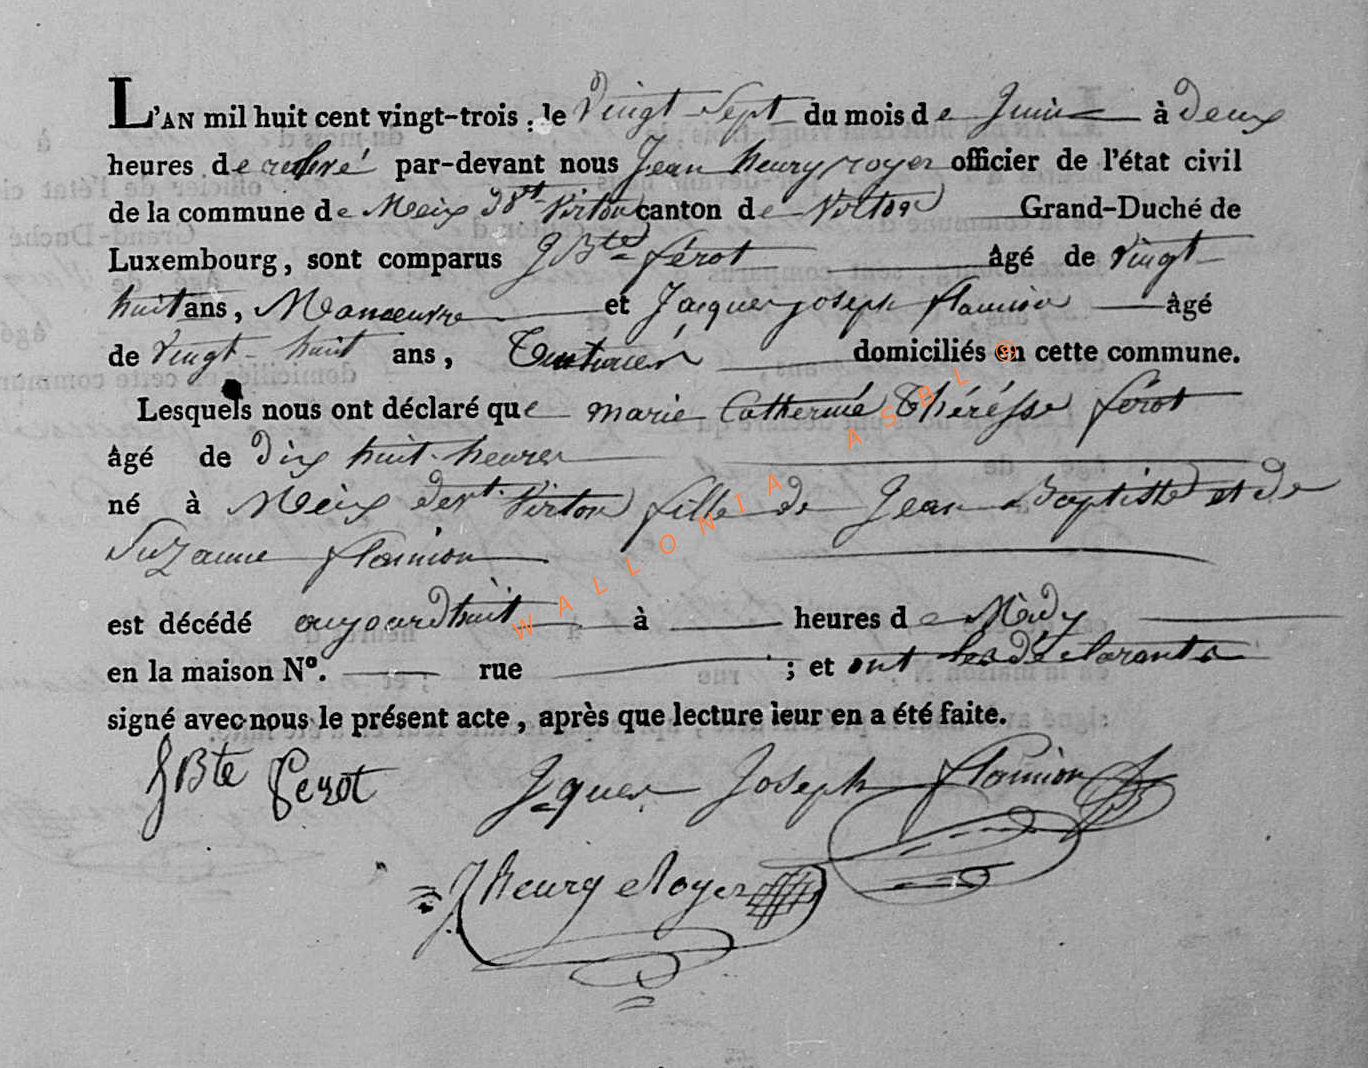 L'AN mil huit cent vingt-trois, le vingt Sept du mois de Juin à deux
heures de relevé par-devant nous Jean henry royer officier de l'état civil
de la commune de Meix dt Virton canton de Virton Grand-Duché de
Luxembourg, sont comparus J Bte férot âgé de vingt
huit ans, Manoeuvre et Jacques joseph flamion âgé
de vingt-huit ans, domiciliés en cette commune.
Lesquels nous ont déclaré que marie Catherine Thérésse férot
âgé de dix huit heures
né à Meix devt Virton fille de Jean Baptiste et de
Suzanne flamion
est décédé aujourdhuit à heures de Midy
en la maison N°. rue ; et ont les déclarants
signé avec nous le présent acte, après que lecture leur en a été faite.
J Bte ferot Jques Joseph flamion
J henry Royer
WALLONIA ASBL ®